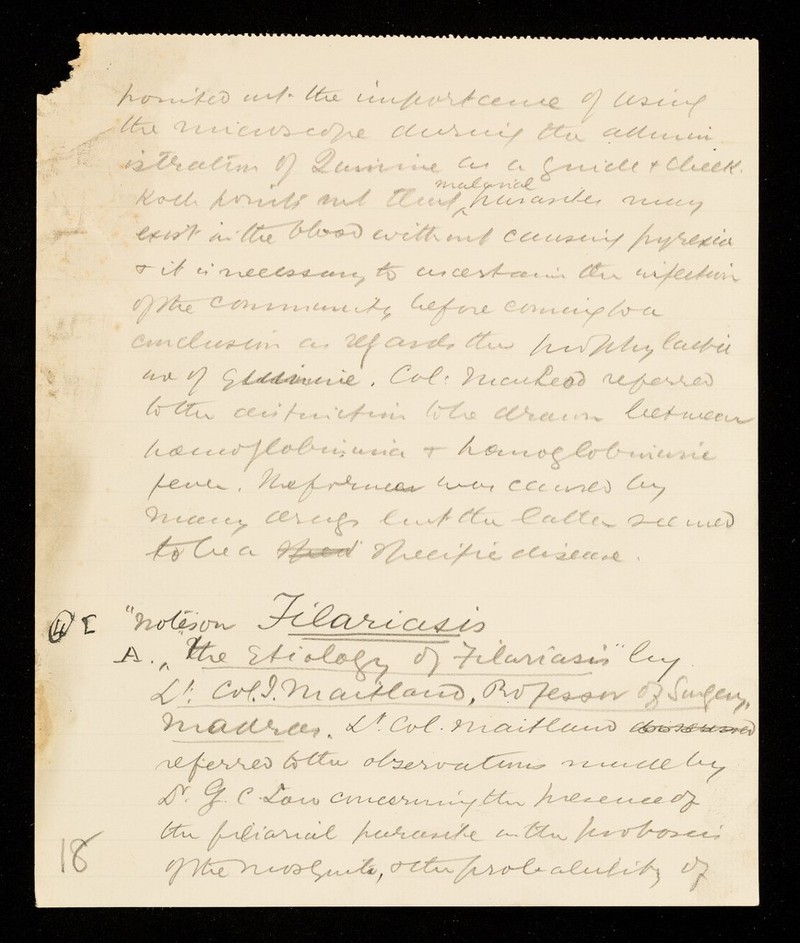 pointed out the importance of using
the microscope during the admin
istration of Quinine as a guide & check.
Koch points out that malarial parasites may
exist in the blood without causing pyrexia
& it is necessary to ascertain the infection
of the community before coming to a
conclusion as regards the prophylactic
use of quinine. Col: MacLeod referred
to the distinction to be drawn between
haemoglobinuria & haemoglobinuric
fever. The former was caused by
many drugs but the latter seemed
to be a specific disease.
④ I "Notes on Filariasis
A. "The Etiology of Filariasis" by
Lt. Col. J. Maitland, Professor of Surgery,
Madras. Lt Col. Maitland discussed
referred to the observations made by
Dr. G. C. Low concerning the presence of
the filiarial parasite in the proboscis
of the mosquito, & the probability of
18